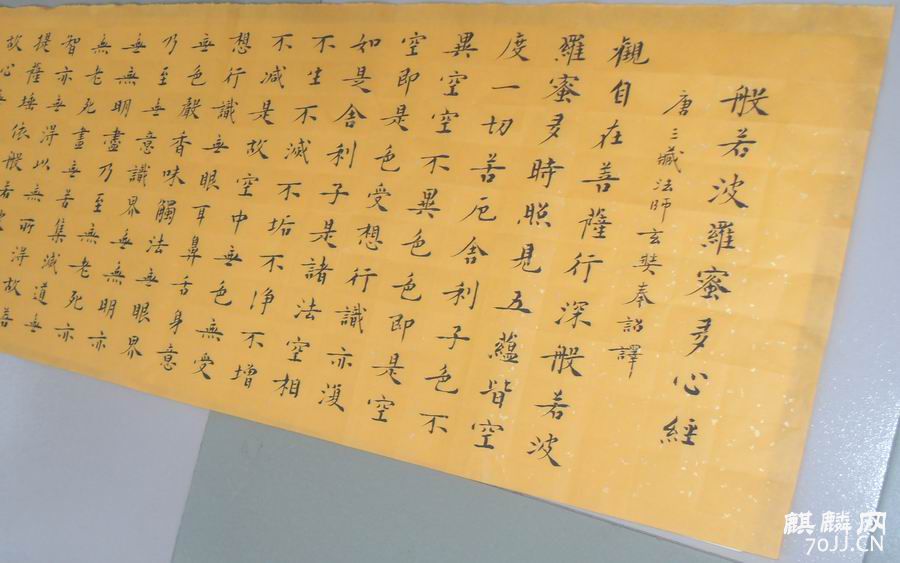 般若波羅蜜多心經
唐三藏法師玄奘奉詔譯
觀自在菩薩行深般若波
羅蜜多時照見五蘊皆空
度一切苦厄舍利子色不
異空空不異色色即是空
空即是色受想行識亦復
如是舍利子是諸法空相
不生不滅不垢不淨不增
不減是故空中無色無受
想行識無眼耳鼻舌身意
無色聲香味觸法無眼界
乃至無意識界無無明亦
無無明盡乃至無老死亦
無老死盡無苦集滅道無
智亦無得以無所得故菩
提薩埵依般若
故心
麒麟网
70JJ.CN